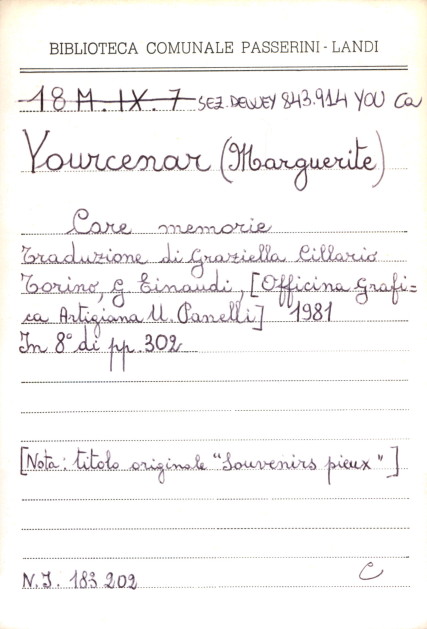 BIBLIOTECA COMUNALE PASSERINI - LANDI
18 M. IX. 7 SEZ. DEWEY 843.914 YOU Ca
Yourcenar (Marguerite)
Care memorie
Traduzione di Graziella Cillario
Torino, G. Einaudi, [Officina Grafi=
ca Artigiana U. Panelli] 1981
In 8° di pp. 302
[Nota: titolo originale "Souvenirs pieux"]
N.I. 183 202 C